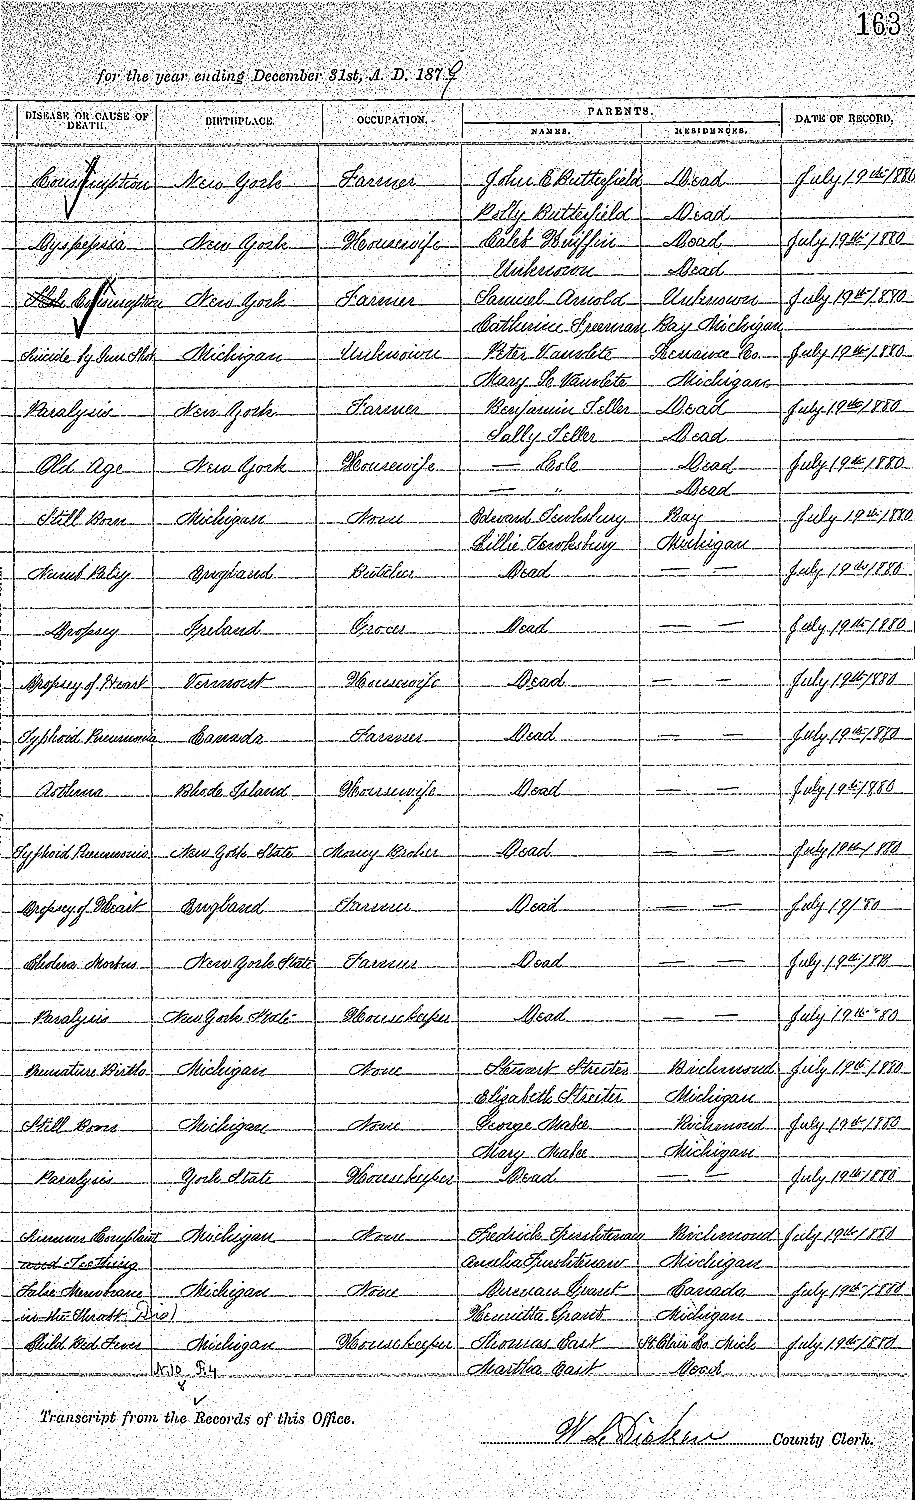 163
for the year ending December 31st, A. D. 1879
DISEASE OR CAUSE OF DEATH. BIRTHPLACE. OCCUPATION. PARENTS. DATE OF RECORD.
NAMES. RESIDENCES.
Consumption New York Farmer John E Butterfield Dead July 19th 1880
Polly Butterfield Dead
Dyspepsia New York Housewife Caleb Dead July 19th 1880
Unknown Dead
Consumption New York Farmer Samuel Arnold Unknown July 19th 1880
Catherine Freeman Ray Michigan
Suicide by Gun Shot Michigan Unknown Peter Vanvlete Lenawee Co. July 19th 1880
Mary Vanvlete Michigan
Paralysis New York Farmer Benjamin Teller Dead July 19th 1880
Sally Teller Dead
Old Age New York Housewife — Cole Dead July 19th 1880
— " Dead
Still Born Michigan None Edward Tewksbury Ray July 19th 1880
Lillie Tewksbury Michigan
Numb Palsy England Butcher Dead — — July 19th 1880
Dropsey Ireland Grocer Dead — — July 19th 1880
Dropsey of Heart Vermont Housewife Dead — — July 19th 1880
Typhoid Pneumonia Canada Farmer Dead — — July 19th 1880
Asthma Rhode Island Housewife Dead — — July 19th 1880
Typhoid Pneumonia New York State Money Broker Dead — — July 19th 1880
Dropsey of Heart England Farmer Dead — — July 19/80
Cholera Morbus New York State Farmer Dead — — July 19th 188
Paralysis New York State Housekeeper Dead — — July 19th 80
Premature Birth Michigan None Stewart Streiter Richmond July 19th 1880
Elizabeth Streiter Michigan
Still Born Michigan None George Make Richmond July 19th 1880
Mary Make Michigan
Paralysis York State Housekeeper Dead — — July 19th 1880
Summer Complaint Michigan None Fredrick Furstenau Richmond July 19th 1880
and Teething Amalia Furstenau Michigan
False Membrane Michigan None Duncan Grant Canada July 19th 1880
in the Throat (Dip) Henrietta Grant Michigan
Child Bed Fever Michigan Housekeeper Thomas East St Clair Co. Mich July 19th 1880
Martha East Dead
Transcript from the Records of this Office.
County Clerk.